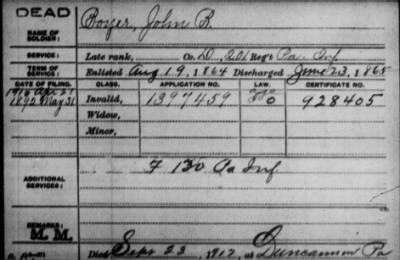 DEAD
NAME OF SOLDIER: Boyer, John B.
SERVICE: Late rank, Co. D, 201 Reg't Pa. Inf.
TERM OF SERVICE: Enlisted Aug 19, 1864 Discharged June 23, 1865
DATE OF FILING. CLASS. APPLICATION NO. LAW. CERTIFICATE NO.
1890 May 31 Invalid, 1397459 928405
Widow,
Minor,
ADDITIONAL SERVICES: F 130 Pa Inf
REMARKS:
M. M. Died Sept 23, 1912, at Duncannon Pa